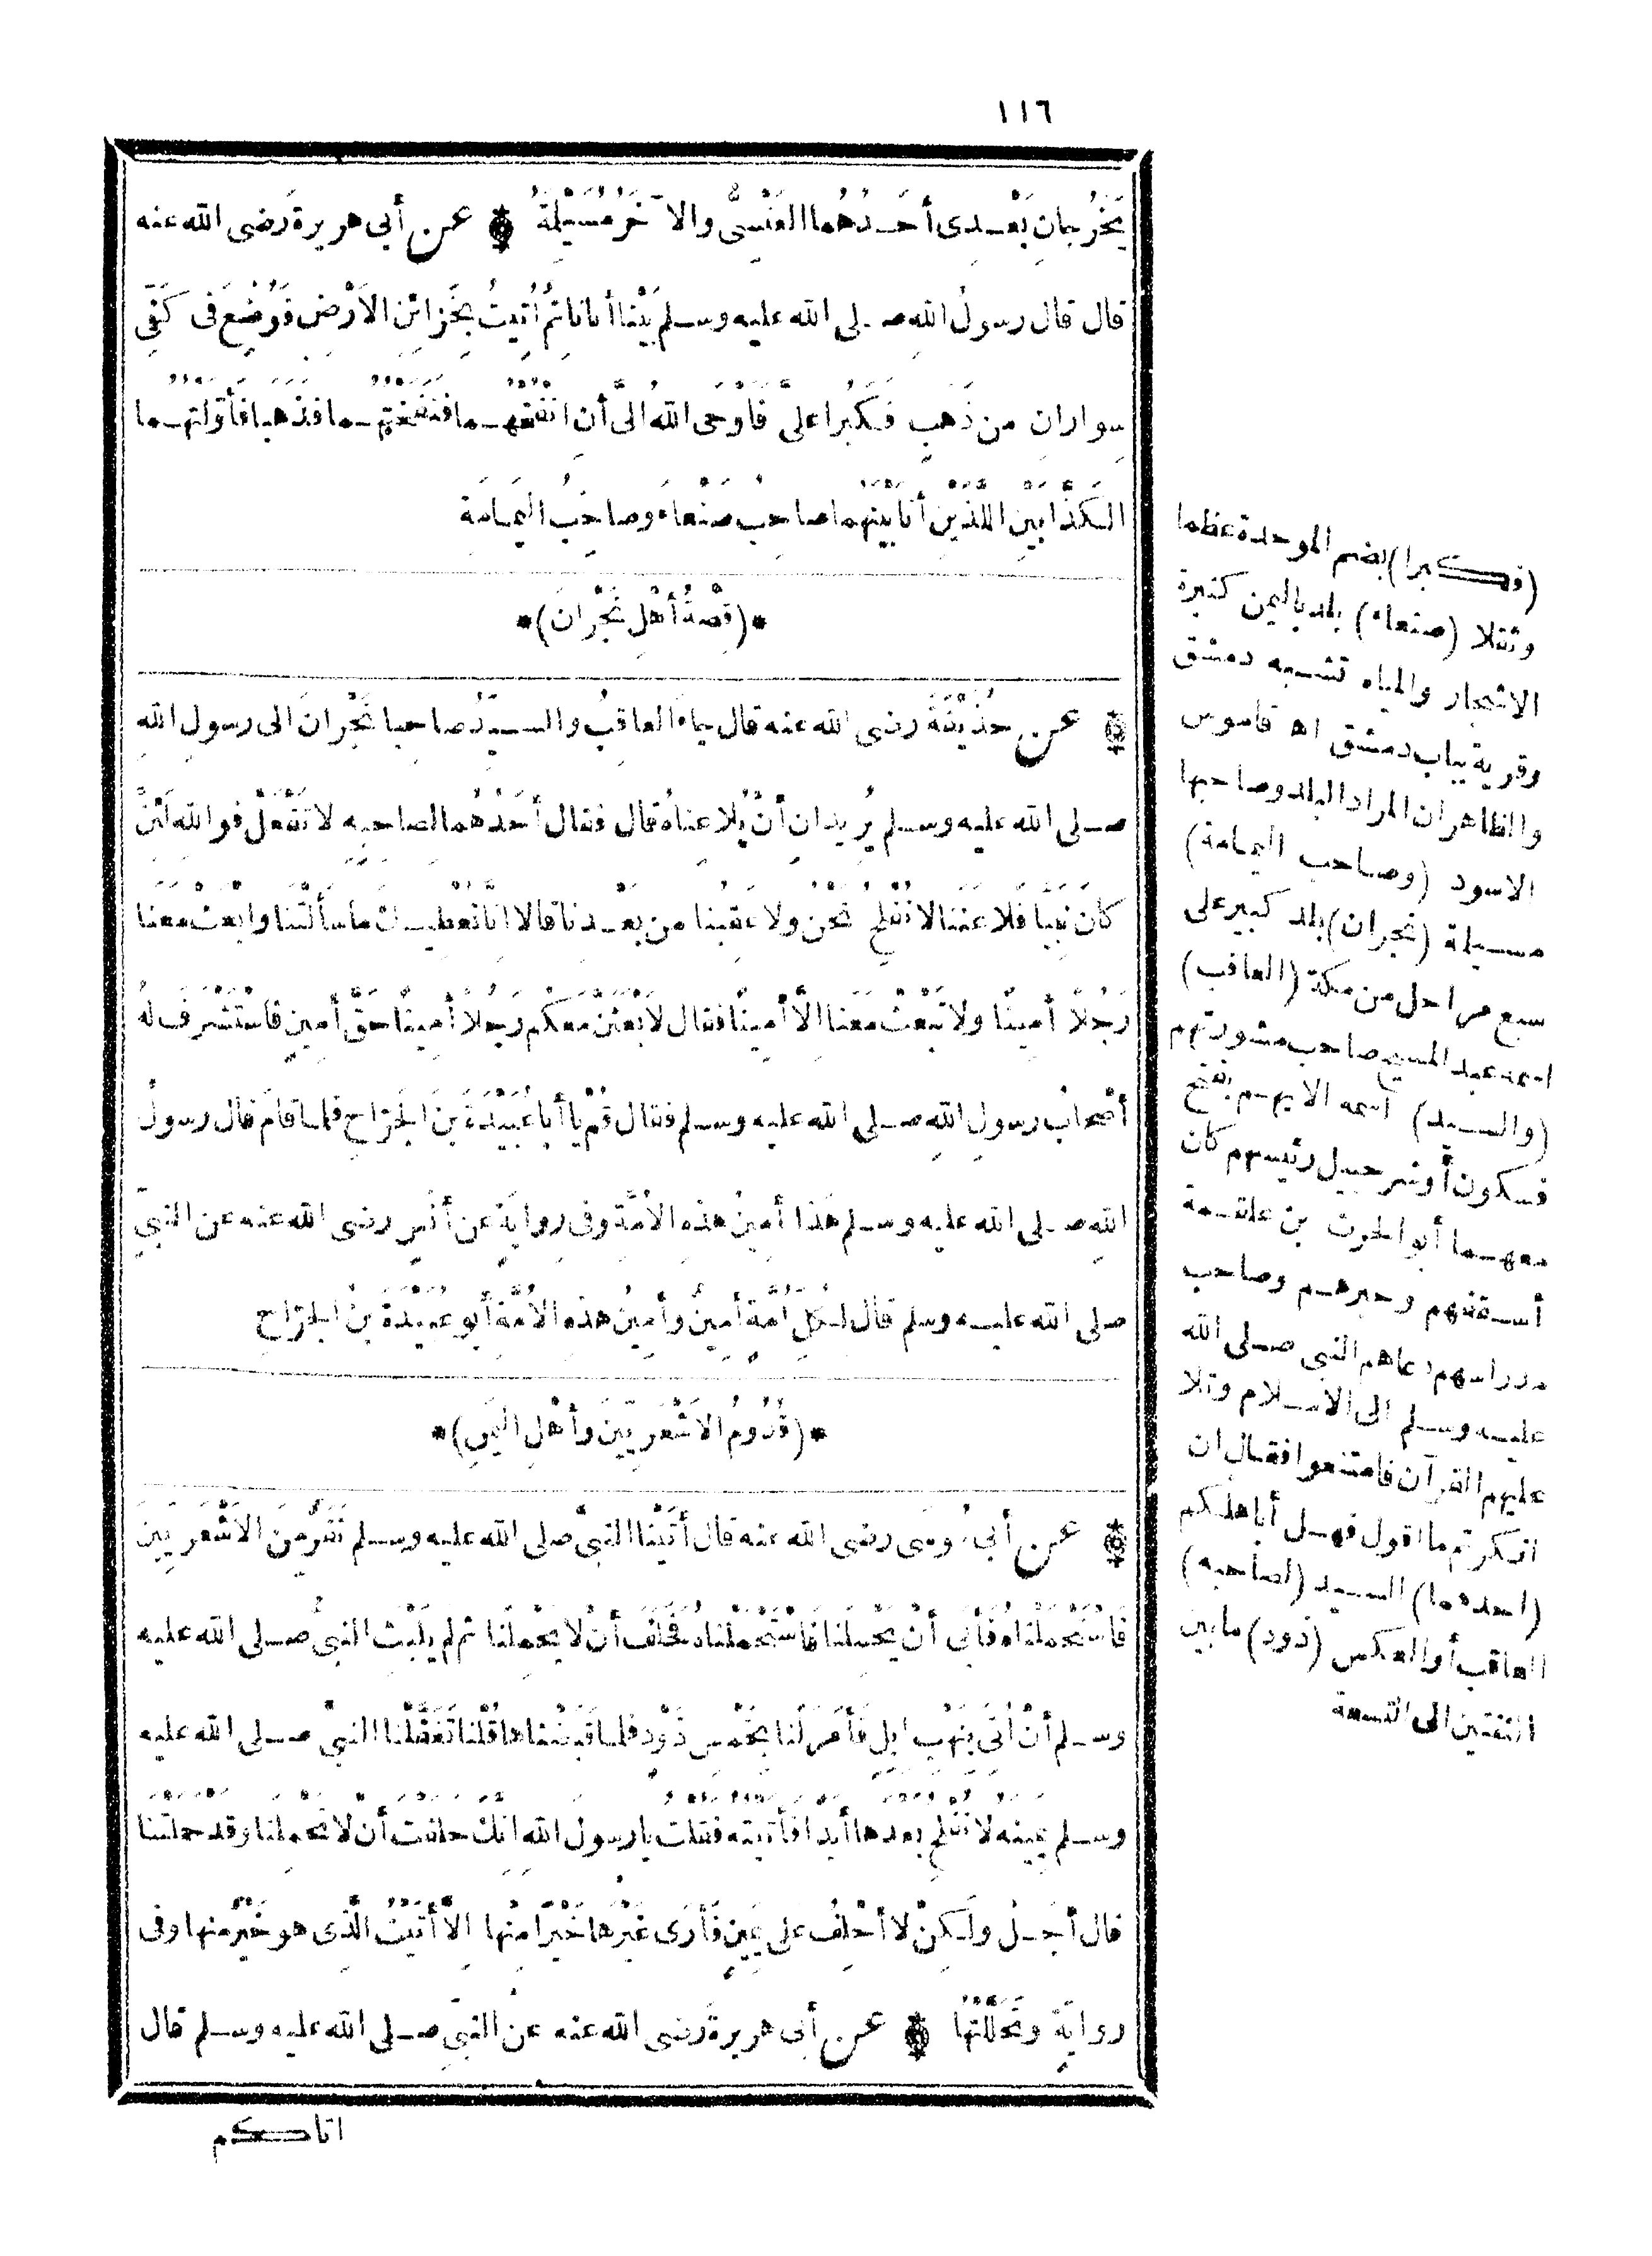 ١١٦
يَخْرُجانِ بَعْدِى أحَدُهُما العَنْسِىُّ والا خَرُ مُسَيْلِةُ ۞ عن أبى هريرة رَضى الله عنه
قال قال رسولُ اللهِ صلى الله عليه وسلم بَيْنا أنا نائمٌ أُتِيتُ بِخَزائنِ الاَرْضِ فَوُضِعَ فى كَفِّى
سِوارانِ من ذَهَبٍ فَكَبُرا علىَّ فَأوْحَى اللهُ الىَّ أنِ انْفُخْهما فَنَفَخْتُهما فذَهَبا فأوَّلْتُهما
الكَذَّابَيْنِ اللَّذَيْنِ أنا بَيْنَهُما صاحِبُ صَنْعاءَ وصاحِبُ اليَمامَة
*(قِصَّةُ أهْلِ نَجْرانَ)*
۞ عن حُذَيْفَةَ رضى الله عنه قال جاءَ العاقِبُ والسيدُ صاحبا نَجْرانَ الى رسولِ اللهِ
صلى الله عليه وسلم يُريدانِ أنْ يُلاعِناهُ قال فقال أحَدُهُما لصاحِبِهِ لا تَفْعَلْ فواللهِ لَئِنْ
كانَ نَبِيًّا فَلاعَنَنا لا نُفْلِحُ نَحْنُ ولا عَقِبُنا من بَعْدِنا قالا انا نُعْطِيكَ ما سَألْتَنا وابْعَثْ مَعَنا
رَجُلاً أمينًا ولا تَبْعَثْ مَعَنا الاَّ أمينًا فقال لَاَبْعَثَنَّ مَعَكُم رَجُلاً أمينًا حَقَّ أمينٍ فاسْتَشْرَفَ لَهُ
أصْحابُ رسولِ اللهِ صلى الله عليه وسلم فقال قُمْ يا أبا عُبَيْدَةَ بنَ الجَرَّاحِ فلما قامَ قال رسولُ
اللهِ صلى الله عليه وسلم هَذا أمينُ هذه الاُمَّةِ وفى روايَةٍ عن أنَسٍ رضى الله عنه عن النبىِّ
صلى الله عليه وسلم قال لِكُلِّ أُمَّةٍ أمينٌ وأمينُ هذهِ الاُمَّةِ أبو عُبَيْدَةَ بنُ الجرّاحِ
*(قُدُومُ الاَشْعَرِيِّينَ وأهْلِ اليَمَنِ)*
۞ عن أبى موسَى رضى الله عنه قال أتَيْنا النبىَّ صلى الله عليه وسلم نَفَرٌ مِنَ الاَشْعَرِيِّينَ
فَاسْتَحْمَلْناهُ فَأبَى أنْ يَحْمِلَنا فَاسْتَحْمَلْناهُ فَحَلَفَ أنْ لا يَحْمِلَنا ثم لم يَلْبَثِ النبىُّ صلى الله عليه
وسلم أنْ أُتِىَ بِنَهْبِ ابِلٍ فَأمَرَ لَنا بِخَمْسِ ذَوْدٍ فلما قَبَضْناها قُلْنا تَغَفَّلْنا النبىَّ صلى الله عليه
وسلم يَمِينَه لا نُفْلِحُ بعدها أبدا فأتيته فقلت يا رسولَ اللهِ انكَ حلفتَ أن لا تحملنا وقد حملتنا
قال أجَلْ ولَكِنْ لا أحْلِفُ على يَمِينٍ فَأرَى غَيْرَها خَيْرًا مِنْها الاَّ أتَيْتُ الَّذى هو خَيْرٌ منها وفى
روايَةٍ وتَحَلَّلْتُها ۞ عن أبى هريرةَ رضى الله عنه عن النبىِّ صلى الله عليه وسلم قال
اتاكم
(فكبرا) بضم الموحدة عظما
وثقلا (صنعاء) بلد باليمن كثيرة
الاشجار والمياه تشبه دمشق
وقرية بباب دمشق اه قاموس
والظاهر ان المراد البلد وصاحبها
الاسود (وصاحب اليمامة)
مسيلة (نجران) بلد كبير على
سبع مراحل من مكة (العاقب)
اسمه عبد المسيح صاحب مشورتهم
(والسيد) اسمه الايهم بفتح
فسكون أو شرحبيل رئيسهم كان
معهما أبو الحرث بن علقمة
أسقفهم وحبرهم وصاحب
مدراسهم دعاهم النبى صلى الله
عليه وسلم الى الاسلام وتلا
عليهم القرآن فامتنعوا فقال ان
انكرتم ما اقول فهلم أباهلكم
(احدهما) السيد (لصاحبه)
العاقب أو العكس (ذود) ما بين
الثنتين الى التسعة